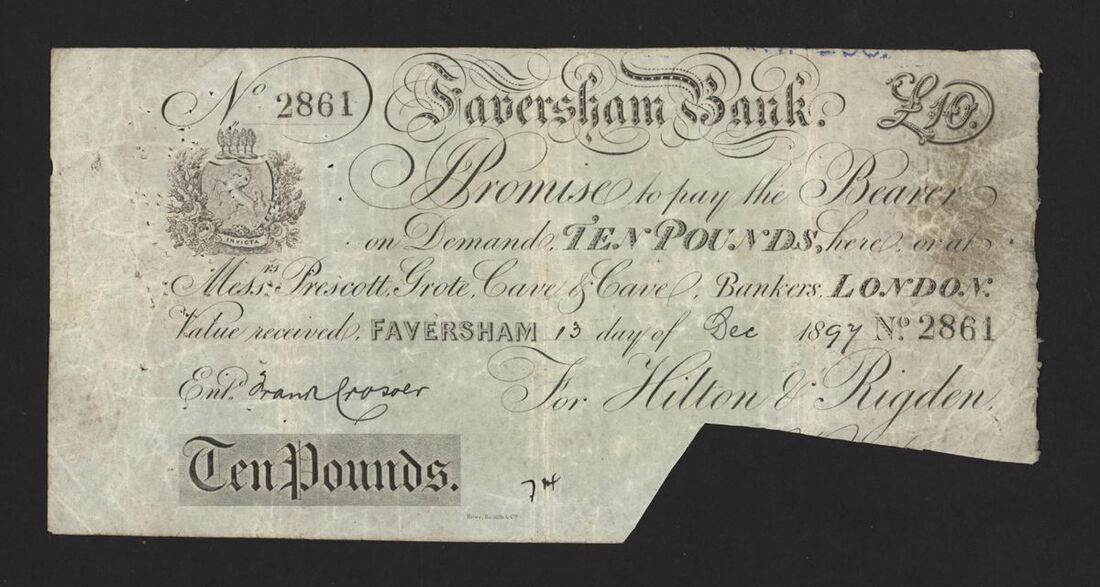 No 2861 Faversham Bank. £10.
I Promise to pay the Bearer
INVICTA
on Demand, TEN POUNDS, here, or at
Messrs Prescott, Grote, Cave & Cave, Bankers, LONDON.
Value received, FAVERSHAM 13 day of Dec 1897 No 2861
Entd. Frank Crosoer For Hilton & Rigden,
Ten Pounds.